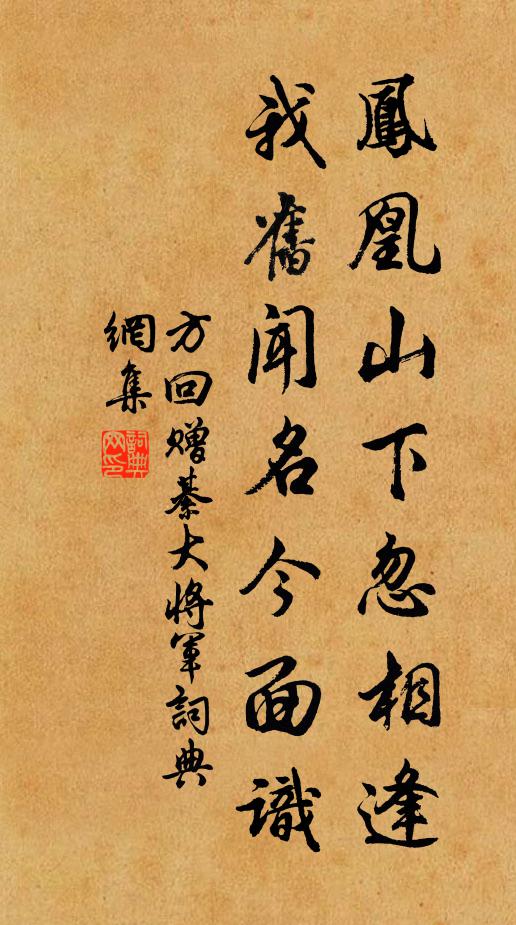 鳳凰山下忽相逢
我舊聞名今面識
方回贈綦大將軍詞典
網集
詞典網印